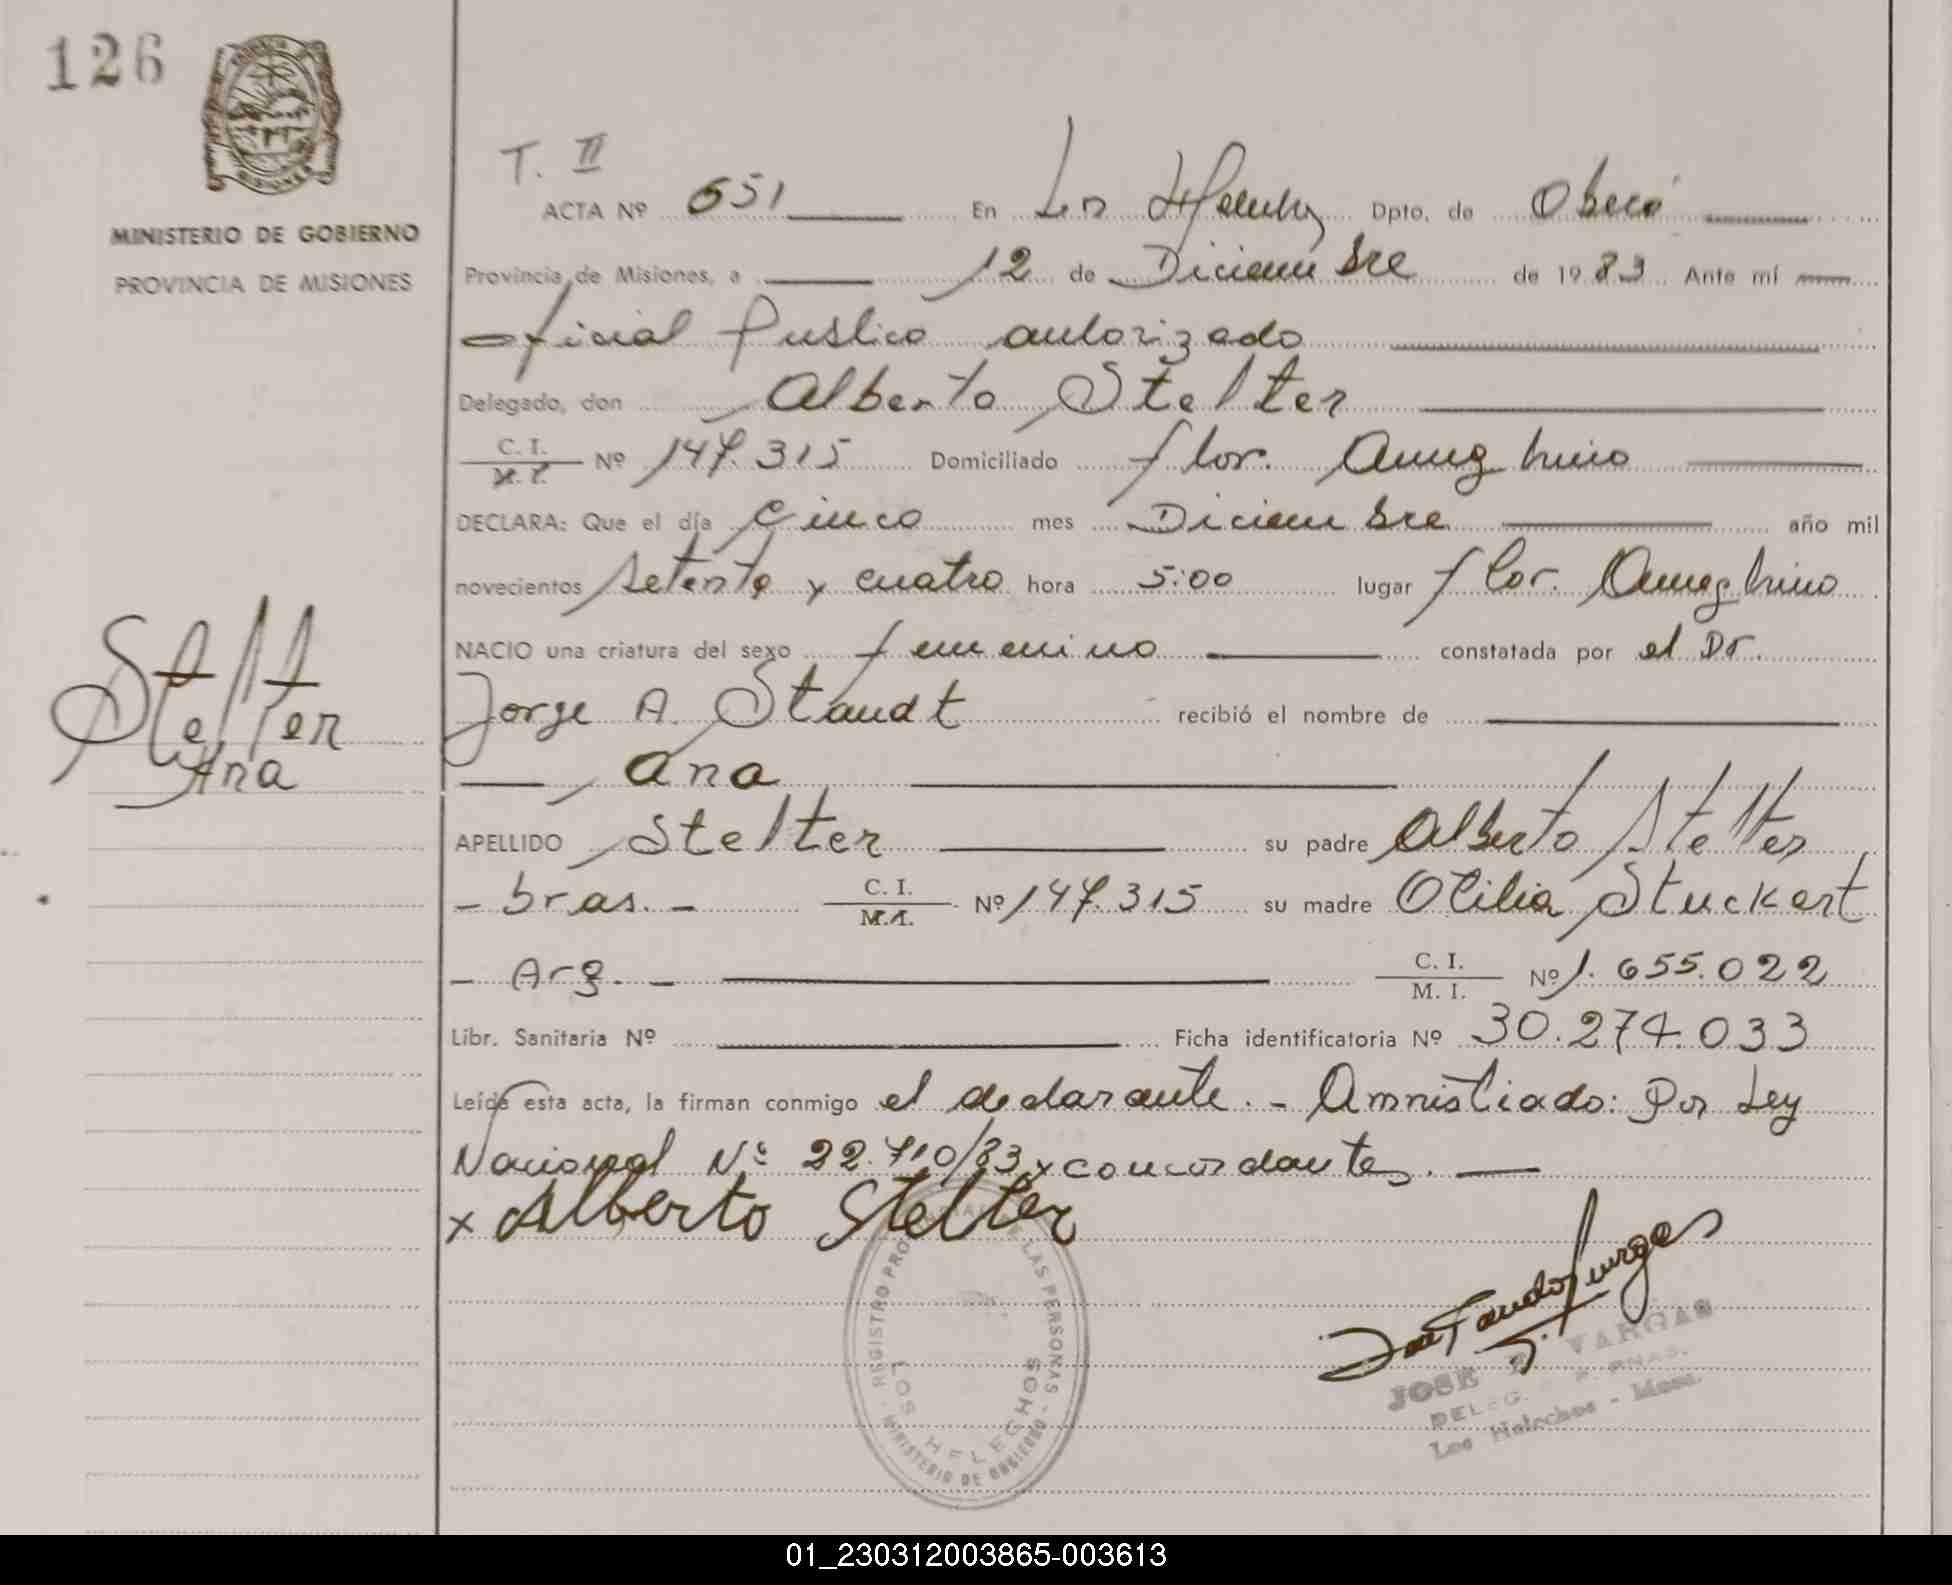 126
MINISTERIO DE GOBIERNO
PROVINCIA DE MISIONES
T. II
ACTA Nº 651 En Los Helechos Dpto. de Oberá
Provincia de Misiones, a 12 de Diciembre de 1983 Ante mí
oficial Publico autorizado
Delegado, don Alberto Stelter
C. I. Nº 147.315 Domiciliado flor. Ameghino
M. I.
DECLARA: Que el día cinco mes Diciembre año mil
novecientos setenta y cuatro hora 5:00 lugar flor. Ameghino
NACIO una criatura del sexo femenino constatada por el Dr.
Jorge A. Staudt recibió el nombre de
Ana
Stelter
Ana
APELLIDO Stelter su padre Alberto Stelter
- bras. - C. I. Nº 147.315 su madre Otilia Stuckert
M.I.
- Arg. - C. I. Nº 1.655.022
M. I.
Libr. Sanitaria Nº Ficha identificatoria Nº 30.274.033
Leída esta acta, la firman conmigo el declarante. - Amnistiado: Por Ley
Nacional Nº 22.710/83 y concordantes.
x Alberto Stelter
REGISTRO PROVINCIAL DE LAS PERSONAS
LOS HELECHOS
- MINISTERIO DE GOBIERNO -
JOSE F. VARGAS
DELEG. R. P. PNAS.
Los Helechos - Mnes.
01_230312003865-003613